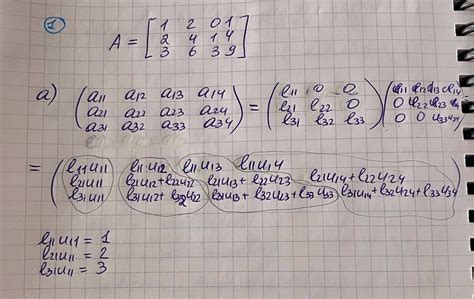 ①
A = [ 1 2 0 1
2 4 1 4
3 6 3 9 ]
a) ( a11 a12 a13 a14
a21 a22 a23 a24
a31 a32 a33 a34 ) = ( l11 0 0
l21 l22 0
l31 l32 l33 ) ( u11 u12 u13 u14
0 u22 u23 u24
0 0 u33 u34 )
= ( l11u11 l11·u12 l11u13 l11u14
l21u11 l21u12+l22u22 l21u13+l22u23 l21u14+l22u24
l31u11 l31u12+l32u22 l31u13+l32u23+l33u33 l31u14+l32u24+l33u34 )
l11u11 = 1
l21u11 = 2
l31u11 = 3